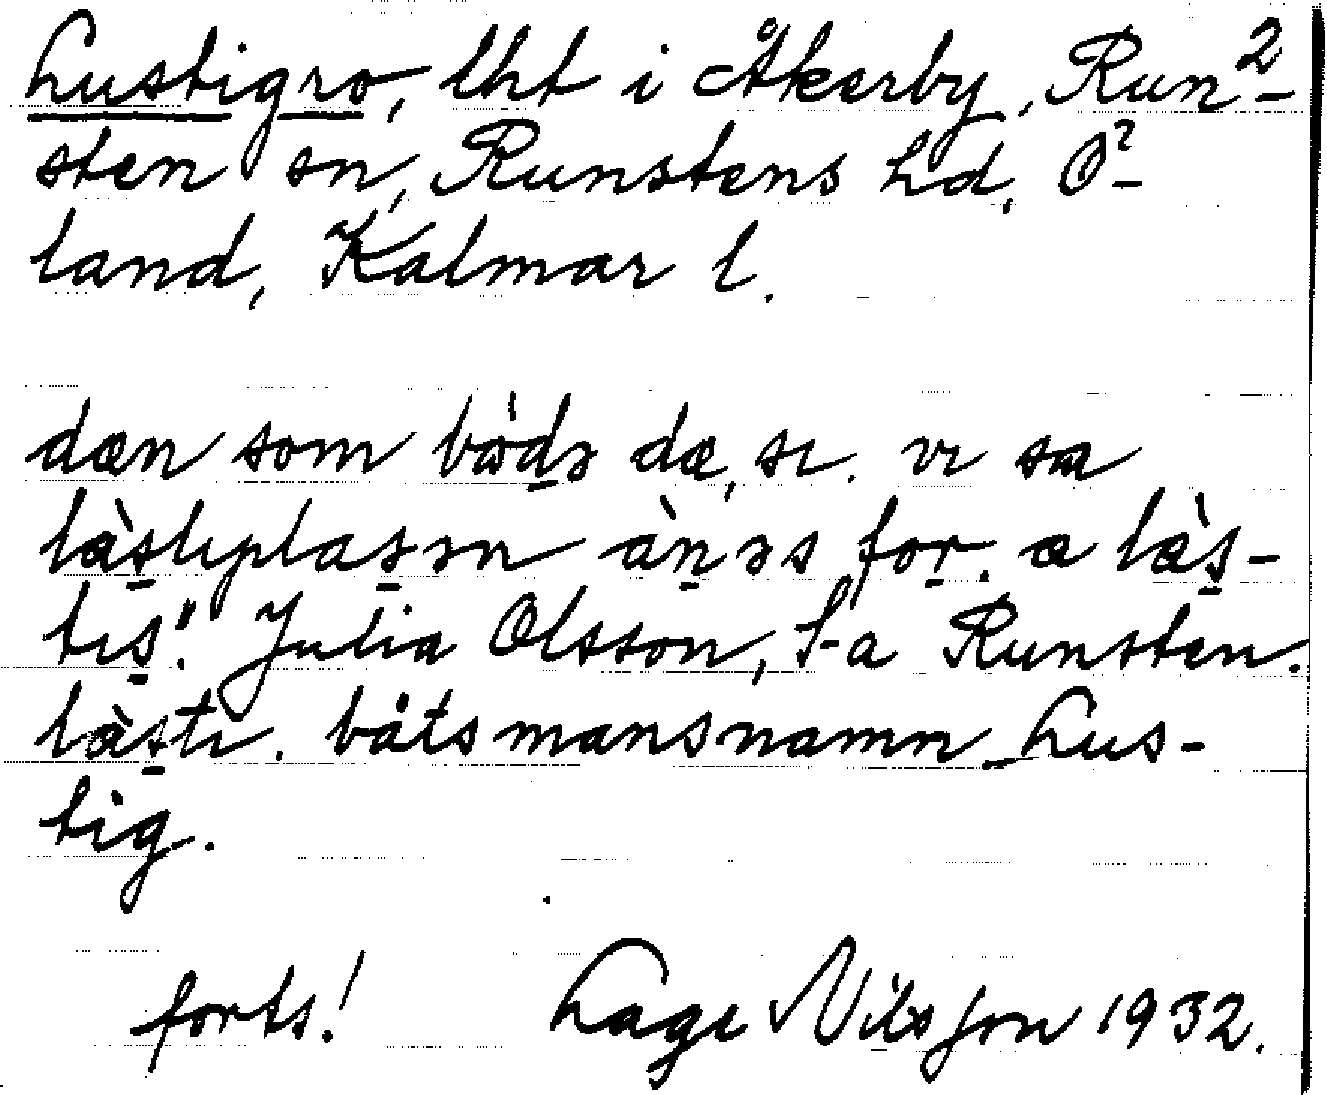 Lustigro, lht i Åkerby, Run-
sten sn, Runstens hd, Ö-
land, Kalmar l.
dæn som bòdə dæ, sı. vı sa
làstıplasən ànəs for. a làs-
tıs!" Julia Olsson, f-a Runsten.
làstı. båtsmansnamn Lus-
tig.
forts! Lage Nilsson 1932.